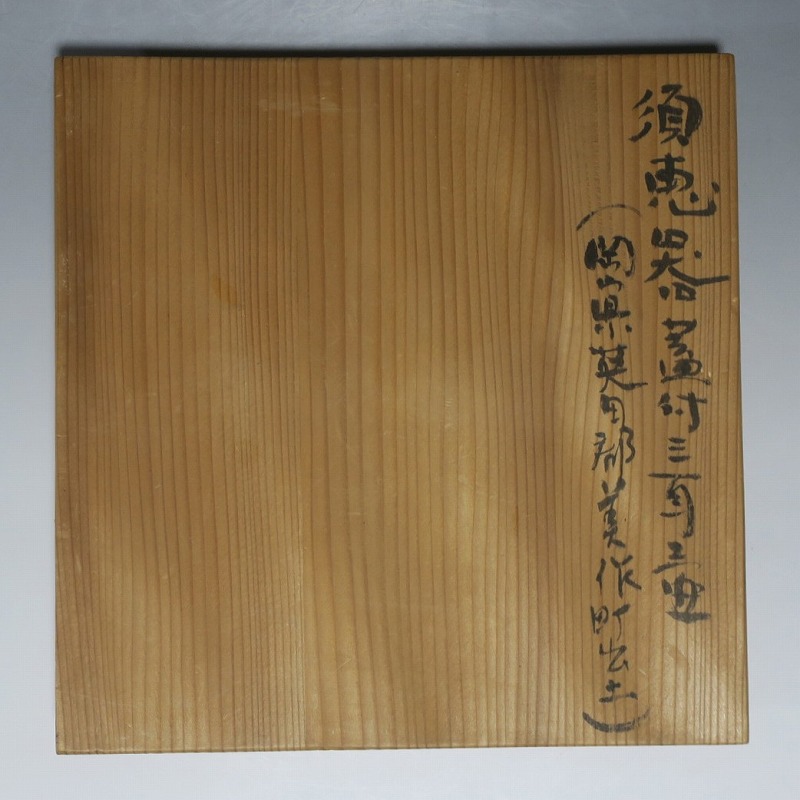 須恵器蓋付三耳壷
(岡山県英田郡美作町出土)